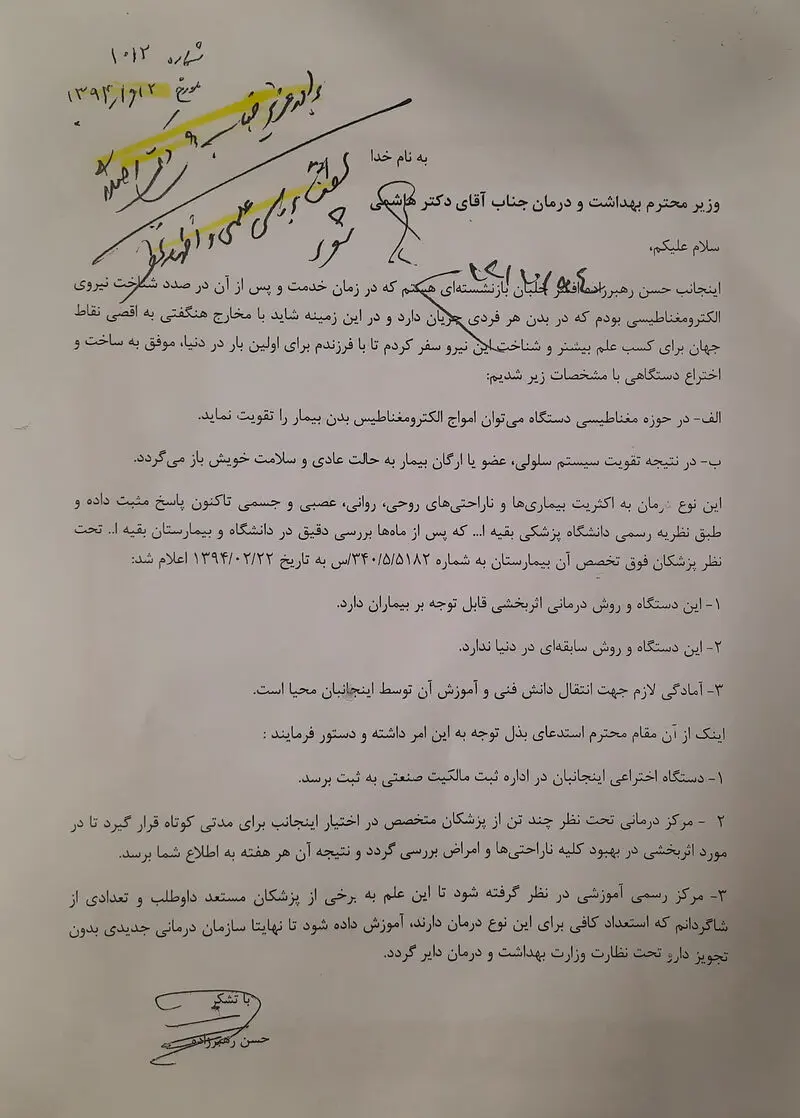 شماره ۱۰۱۲
مورخ ۱۳۹۴/۶/۱۲
برادر عزیز جناب
لطفا بررسی علمی و اظهار نظر
شود
به نام خدا
وزیر محترم بهداشت و درمان جناب آقای دکتر هاشمی
سلام علیکم،
اینجانب حسن رهبرزاده افسر خلبان بازنشسته‌ای هستم که در زمان خدمت و پس از آن در صدد شناخت نیروی
الکترومغناطیسی بودم که در بدن هر فردی جریان دارد و در این زمینه شاید با مخارج هنگفتی به اقصی نقاط
جهان برای کسب علم بیشتر و شناخت این نیرو سفر کردم تا با فرزندم برای اولین بار در دنیا، موفق به ساخت و
اختراع دستگاهی با مشخصات زیر شدیم:
الف- در حوزه مغناطیسی دستگاه می‌توان امواج الکترومغناطیس بدن بیمار را تقویت نماید.
ب- در نتیجه تقویت سیستم سلولی، عضو یا ارگان بیمار به حالت عادی و سلامت خویش باز می‌گردد.
این نوع درمان به اکثریت بیماری‌ها و ناراحتی‌های روحی، روانی، عصبی و جسمی تاکنون پاسخ مثبت داده و
طبق نظریه رسمی دانشگاه پزشکی بقیه ا... که پس از ماه‌ها بررسی دقیق در دانشگاه و بیمارستان بقیه ا.. تحت
نظر پزشکان فوق تخصص آن بیمارستان به شماره ۳۴۰/۵/۵۱۸۲/س به تاریخ ۱۳۹۴/۰۲/۲۲ اعلام شد:
۱- این دستگاه و روش درمانی اثربخشی قابل توجه بر بیماران دارد.
۲- این دستگاه و روش سابقه‌ای در دنیا ندارد.
۳- آمادگی لازم جهت انتقال دانش فنی و آموزش آن توسط اینجانبان محیا است.
اینک از آن مقام محترم استدعای بذل توجه به این امر داشته و دستور فرمایند :
۱- دستگاه اختراعی اینجانبان در اداره ثبت مالکیت صنعتی به ثبت برسد.
۲ - مرکز درمانی تحت نظر چند تن از پزشکان متخصص در اختیار اینجانب برای مدتی کوتاه قرار گیرد تا در
مورد اثربخشی در بهبود کلیه ناراحتی‌ها و امراض بررسی گردد و نتیجه آن هر هفته به اطلاع شما برسد.
۳- مرکز رسمی آموزشی در نظر گرفته شود تا این علم به برخی از پزشکان مستعد داوطلب و تعدادی از
شاگردانم که استعداد کافی برای این نوع درمان دارند، آموزش داده شود تا نهایتا سازمان درمانی جدیدی بدون
تجویز دارو تحت نظارت وزارت بهداشت و درمان دایر گردد.
با تشکر
حسن رهبرزاده